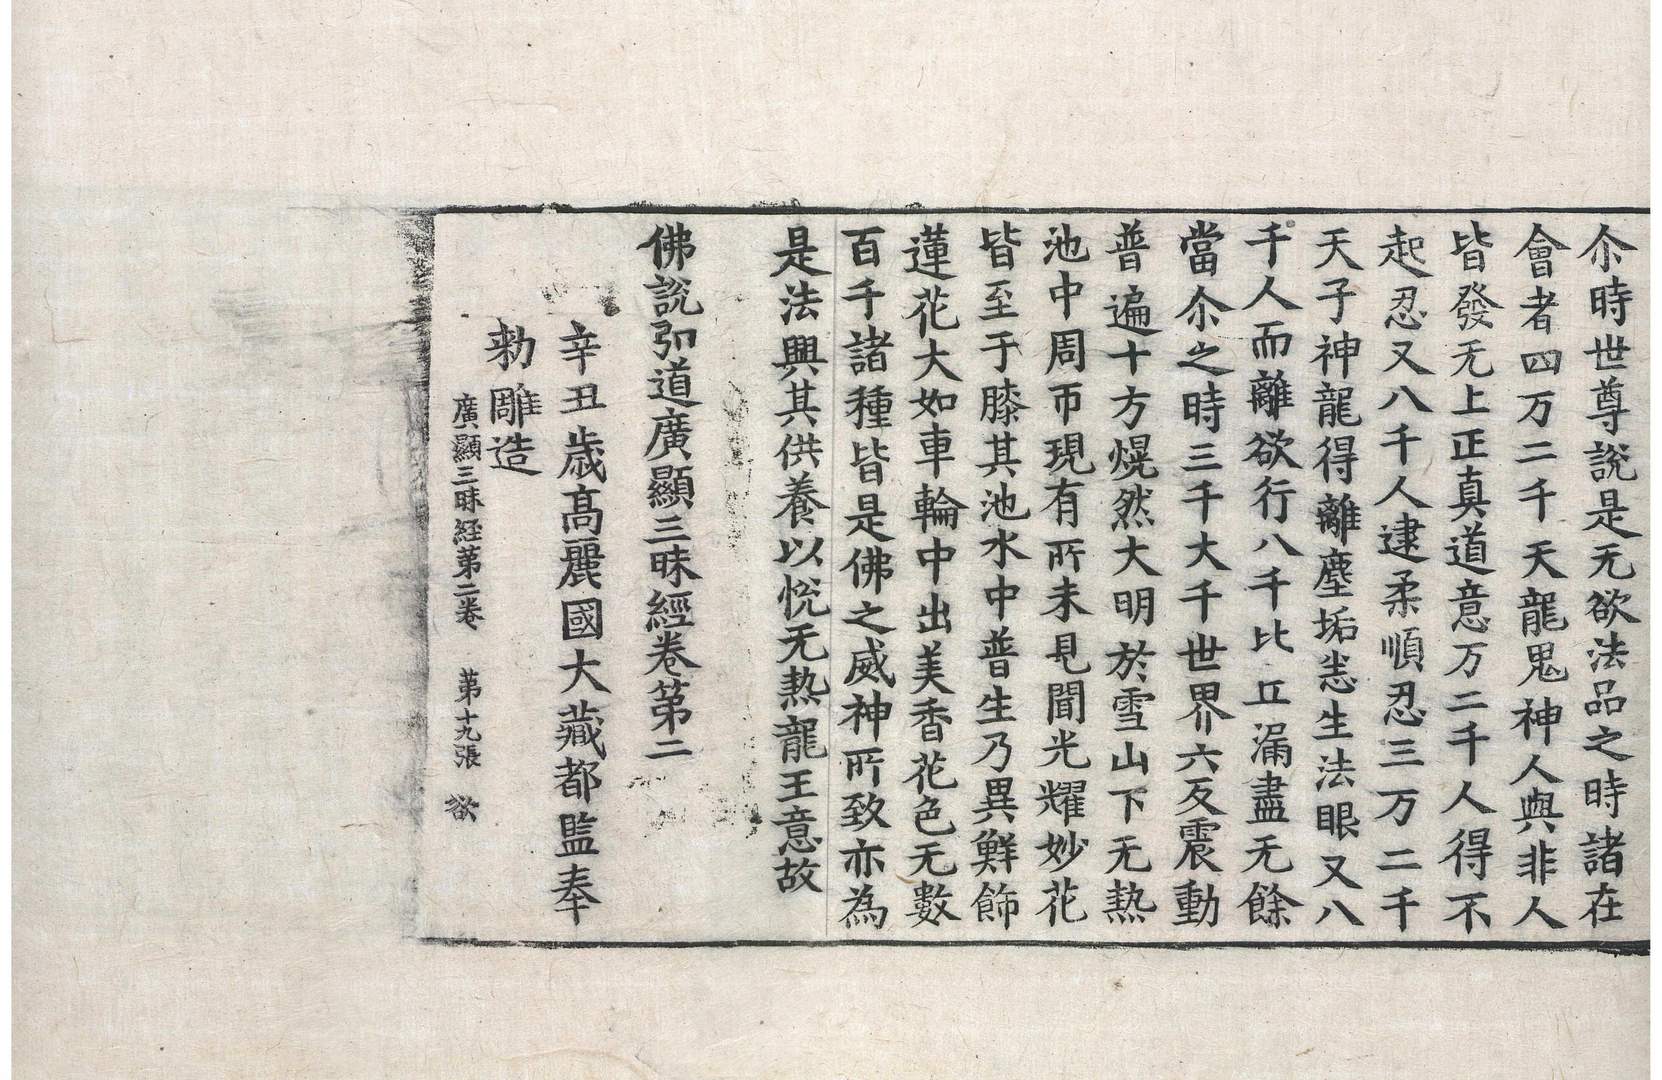 尒時世尊說是无欲法品之時諸在
會者四万二千天龍鬼神人與非人
皆發无上正真道意万二千人得不
起忍又八千人逮柔順忍三万二千
天子神龍得離塵垢恙生法眼又八
千人而離欲行八千比丘漏盡无餘
當尒之時三千大千世界六反震動
普遍十方熀然大明於雪山下无熱
池中周帀現有所未見聞光耀妙花
皆至于膝其池水中普生乃異鮮飾
蓮花大如車輪中出美香花色无數
百千諸種皆是佛之威神所致亦為
是法興其供養以悅无熱龍王意故
佛說弘道廣顯三昧經卷第二
辛丑歲高麗國大藏都監奉
勑雕造
廣顯三昧経第二卷 第十九張 欲